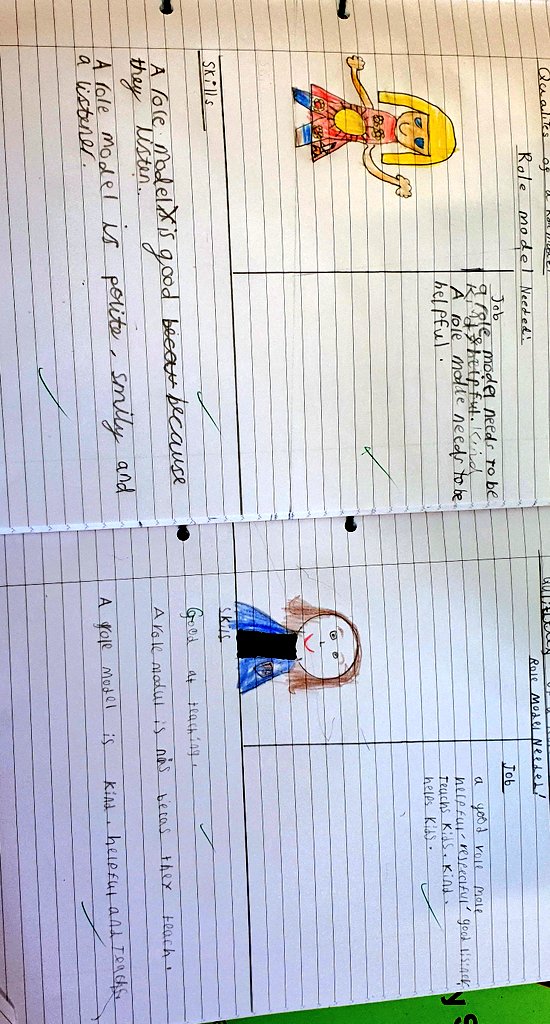 Qualites of a
Role model Needed:
Job
a role model needs to be
kind & helpful. kind
A role modle needs to be
helpful.
Skills
A role model is good because
they listen.
A role model is polite, smily and
a listener.
Role Model Needed!
Job
a good role mole
helpful, respectful, good lisiner,
teachs kids, kind,
helps kids.
Skills
Good at teaching.
A role modul is becas they teach.
A role model is kind, helpful and teachs
ys